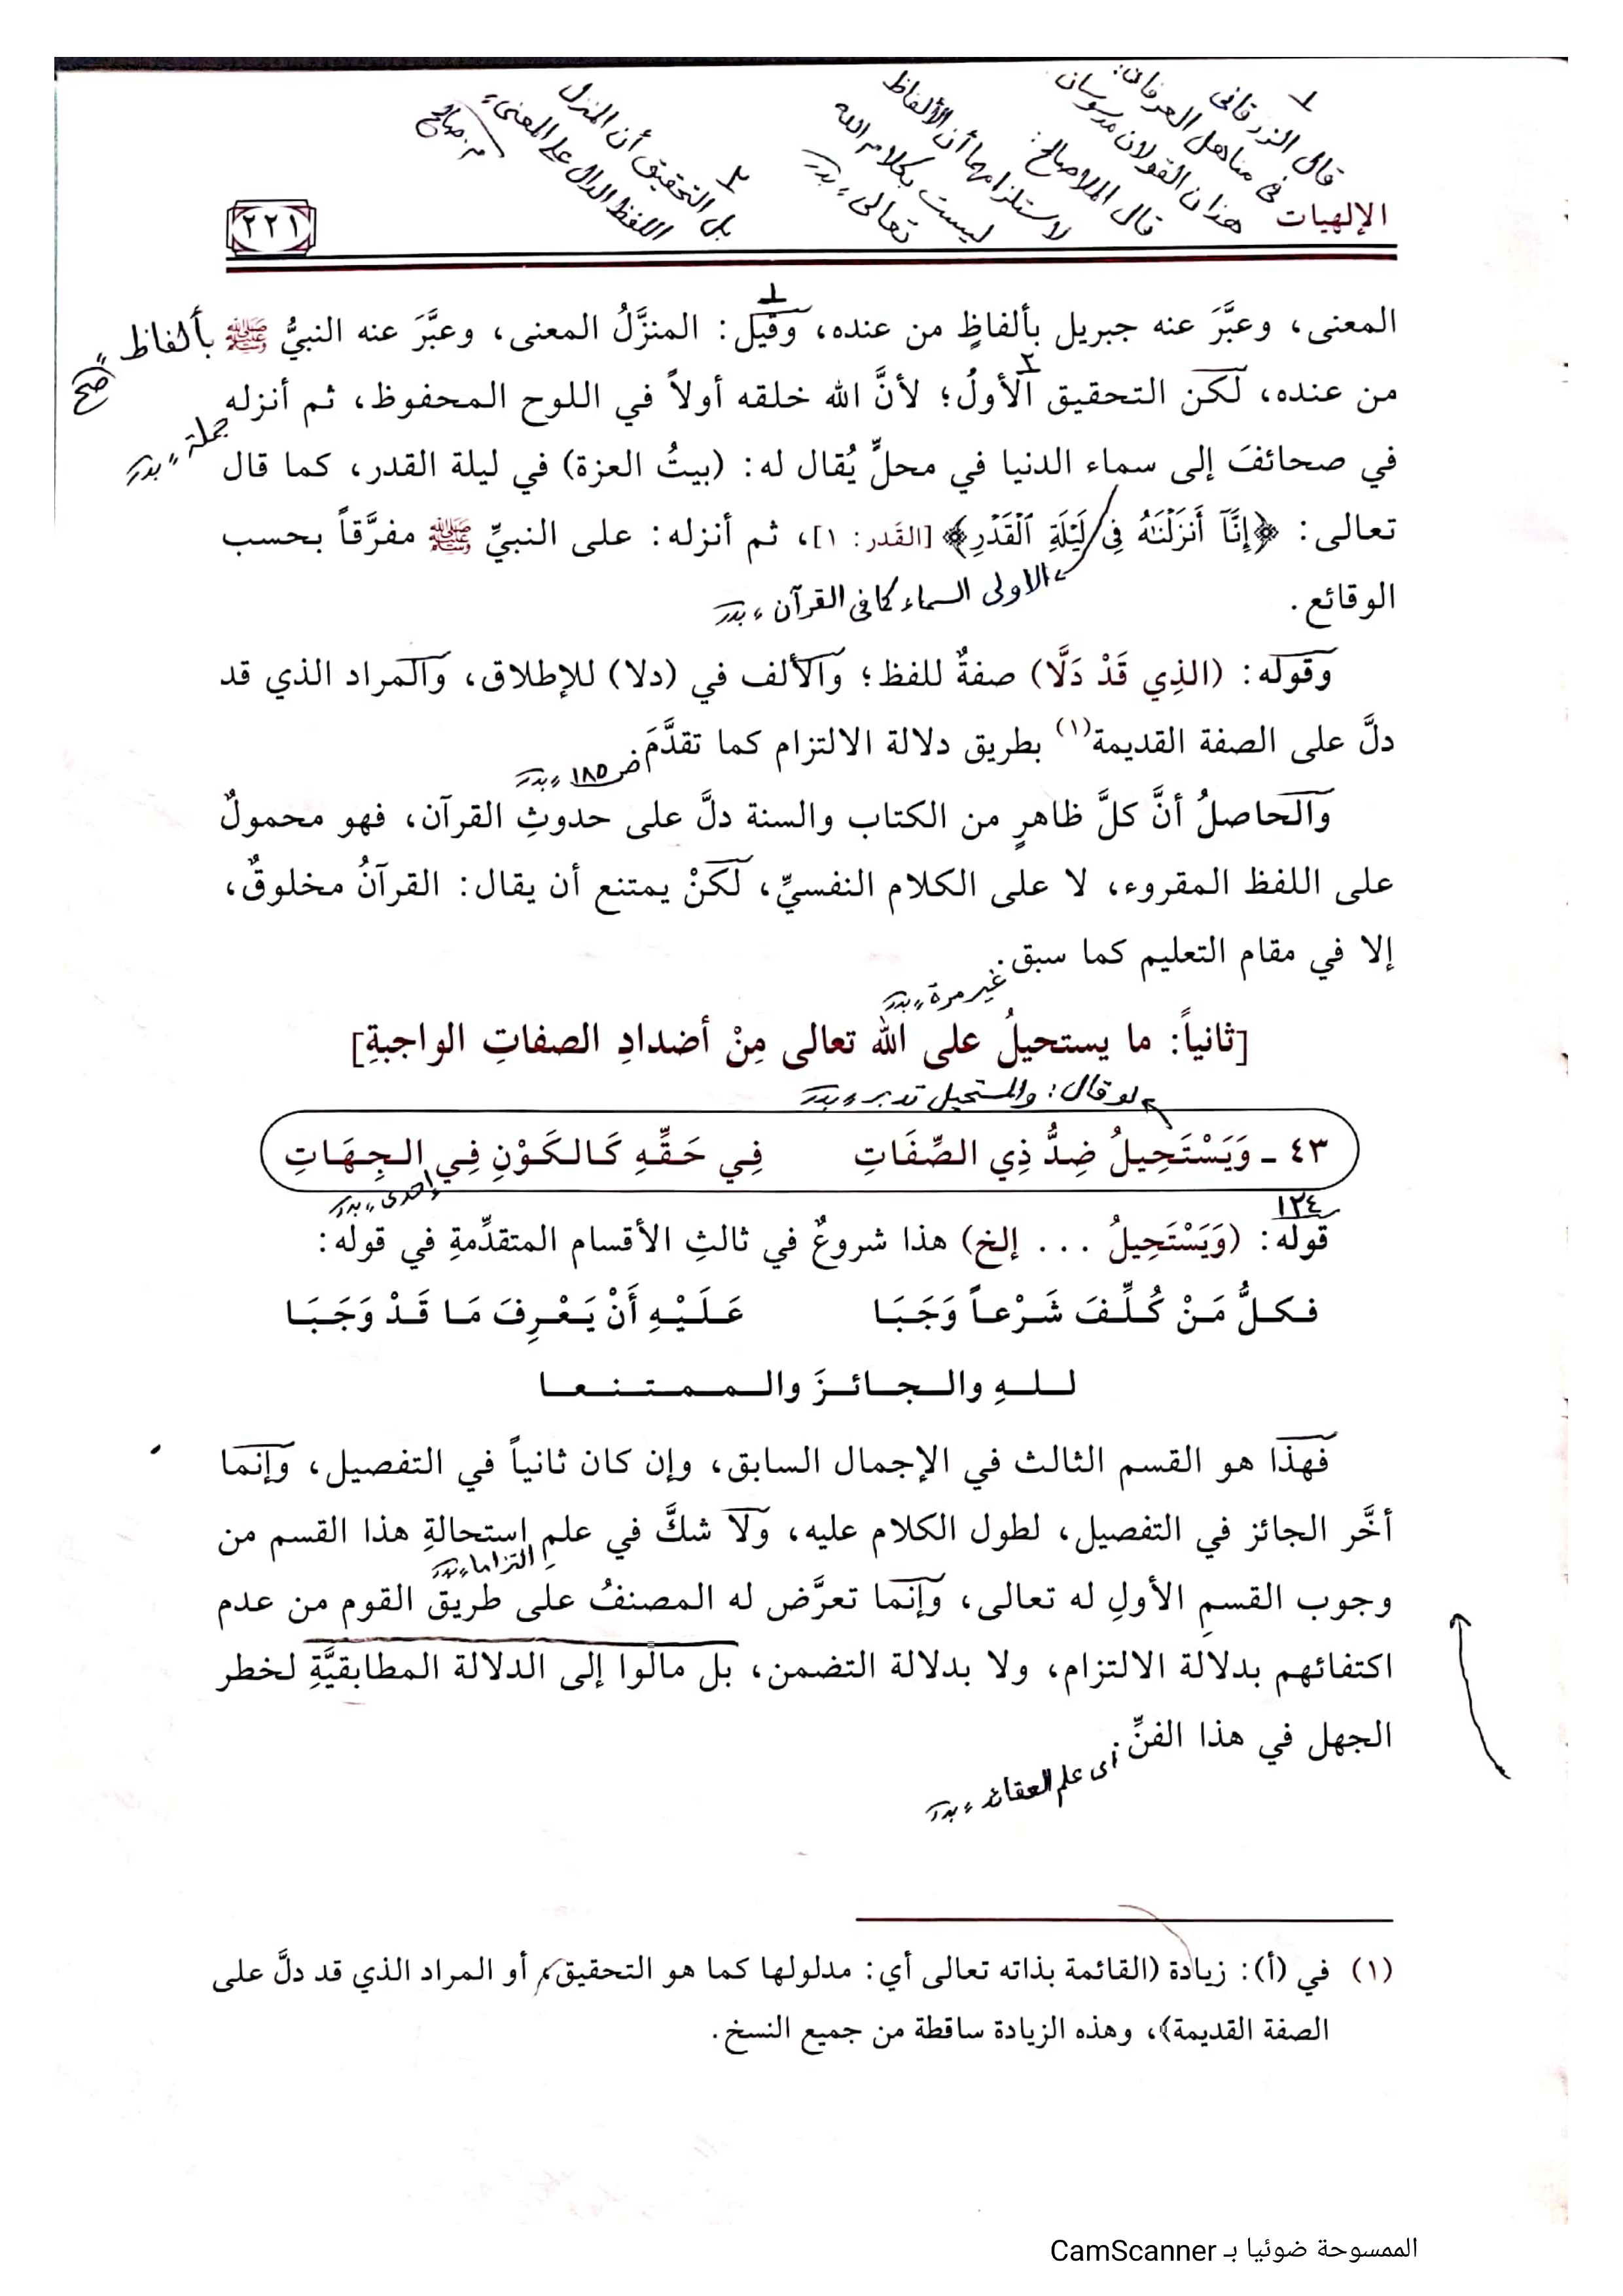 ١
قال الزرقاني
في مناهل العرفان:
هذان القولان مدسوسان
قال الملا صالح:
لاستلزامهما أن الألفاظ
ليست بكلام الله
تعالى، بدر
٢
بل التحقيق أن المنزل
اللفظ الدال على المعنى،
م. صالح
الإلهيات
٢٢١
المعنى، وعبَّرَ عنه جبريل بألفاظٍ من عنده، وقيل: المنزَّلُ المعنى، وعبَّرَ عنه النبيُّ ﷺ بألفاظ صح
من عنده، لكن التحقيق الأولُ؛ لأنَّ الله خلقه أولاً في اللوح المحفوظ، ثم أنزله
جملة، بدر
في صحائفَ إلى سماء الدنيا في محلٍّ يُقال له: (بيتُ العزة) في ليلة القدر، كما قال
تعالى: ﴿إِنَّآ أَنزَلْنَٰهُ فِى لَيْلَةِ ٱلْقَدْرِ﴾ [القَدر: ١]، ثم أنزله: على النبيِّ ﷺ مفرَّقاً بحسب
الاولى السماء كما في القرآن، بدر
الوقائع.
وقوله: (الذِي قَدْ دَلَّا) صفةٌ للفظ؛ والألف في (دلا) للإطلاق، والمراد الذي قد
دلَّ على الصفة القديمة(١) بطريق دلالة الالتزام كما تقدَّمَ.
ص ١٨٥، بدر
والحاصلُ أنَّ كلَّ ظاهرٍ من الكتاب والسنة دلَّ على حدوثِ القرآن، فهو محمولٌ
على اللفظ المقروء، لا على الكلام النفسيِّ، لكنْ يمتنع أن يقال: القرآنُ مخلوقٌ،
إلا في مقام التعليم كما سبق.
غير مرة، بدر
[ثانياً: ما يستحيلُ على الله تعالى مِنْ أضدادِ الصفاتِ الواجبةِ]
لو قال: والمستحيل تدبر، بدر
٤٣ - وَيَسْتَحِيلُ ضِدُّ ذِي الصِّفَاتِ فِي حَقِّهِ كَالكَوْنِ فِي الجِهَاتِ
إحدى، بدر
١٢٤
قوله: (وَيَسْتَحِيلُ ... إلخ) هذا شروعٌ في ثالثِ الأقسام المتقدِّمةِ في قوله:
فكلُّ مَنْ كُلِّفَ شَرْعاً وَجَبَا عَلَيْهِ أَنْ يَعْرِفَ مَا قَدْ وَجَبَا
للهِ والجائزَ والممتنعا
فهذا هو القسم الثالث في الإجمال السابق، وإن كان ثانياً في التفصيل، وإنما
أخَّر الجائز في التفصيل، لطول الكلام عليه، ولا شكَّ في علمِ استحالةِ هذا القسم من
التزاما، بدر
وجوب القسمِ الأولِ له تعالى، وإنما تعرَّض له المصنفُ على طريق القوم من عدم
اكتفائهم بدلالة الالتزام، ولا بدلالة التضمن، بل مالوا إلى الدلالة المطابقيَّةِ لخطر
الجهل في هذا الفنِّ.
أي علم العقائد، بدر
(١) في (أ): زيادة (القائمة بذاته تعالى أي: مدلولها كما هو التحقيق، أو المراد الذي قد دلَّ على
الصفة القديمة)، وهذه الزيادة ساقطة من جميع النسخ.
الممسوحة ضوئيا بـ CamScanner